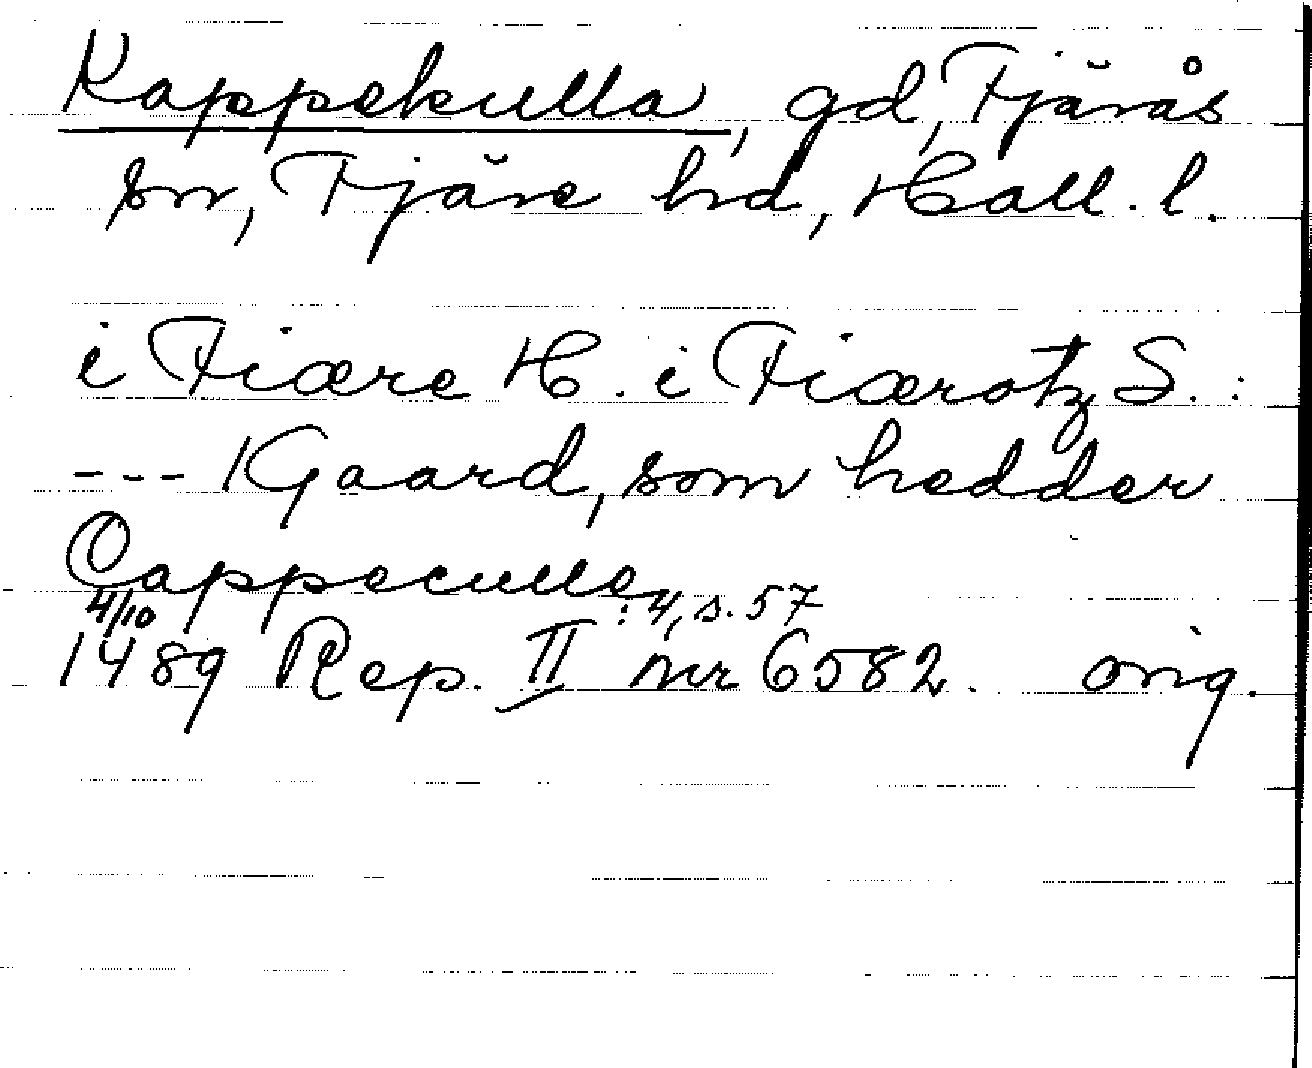 Kappekulla, gd, Fjärås
sn, Fjäre hd, Hall. l.
i Fiære H. i Fiærotz S.:
--- 1 Gaard, som hedder
Cappeculle
4/10 : 4, s. 57
1489 Rep. II nr 6582. orig.